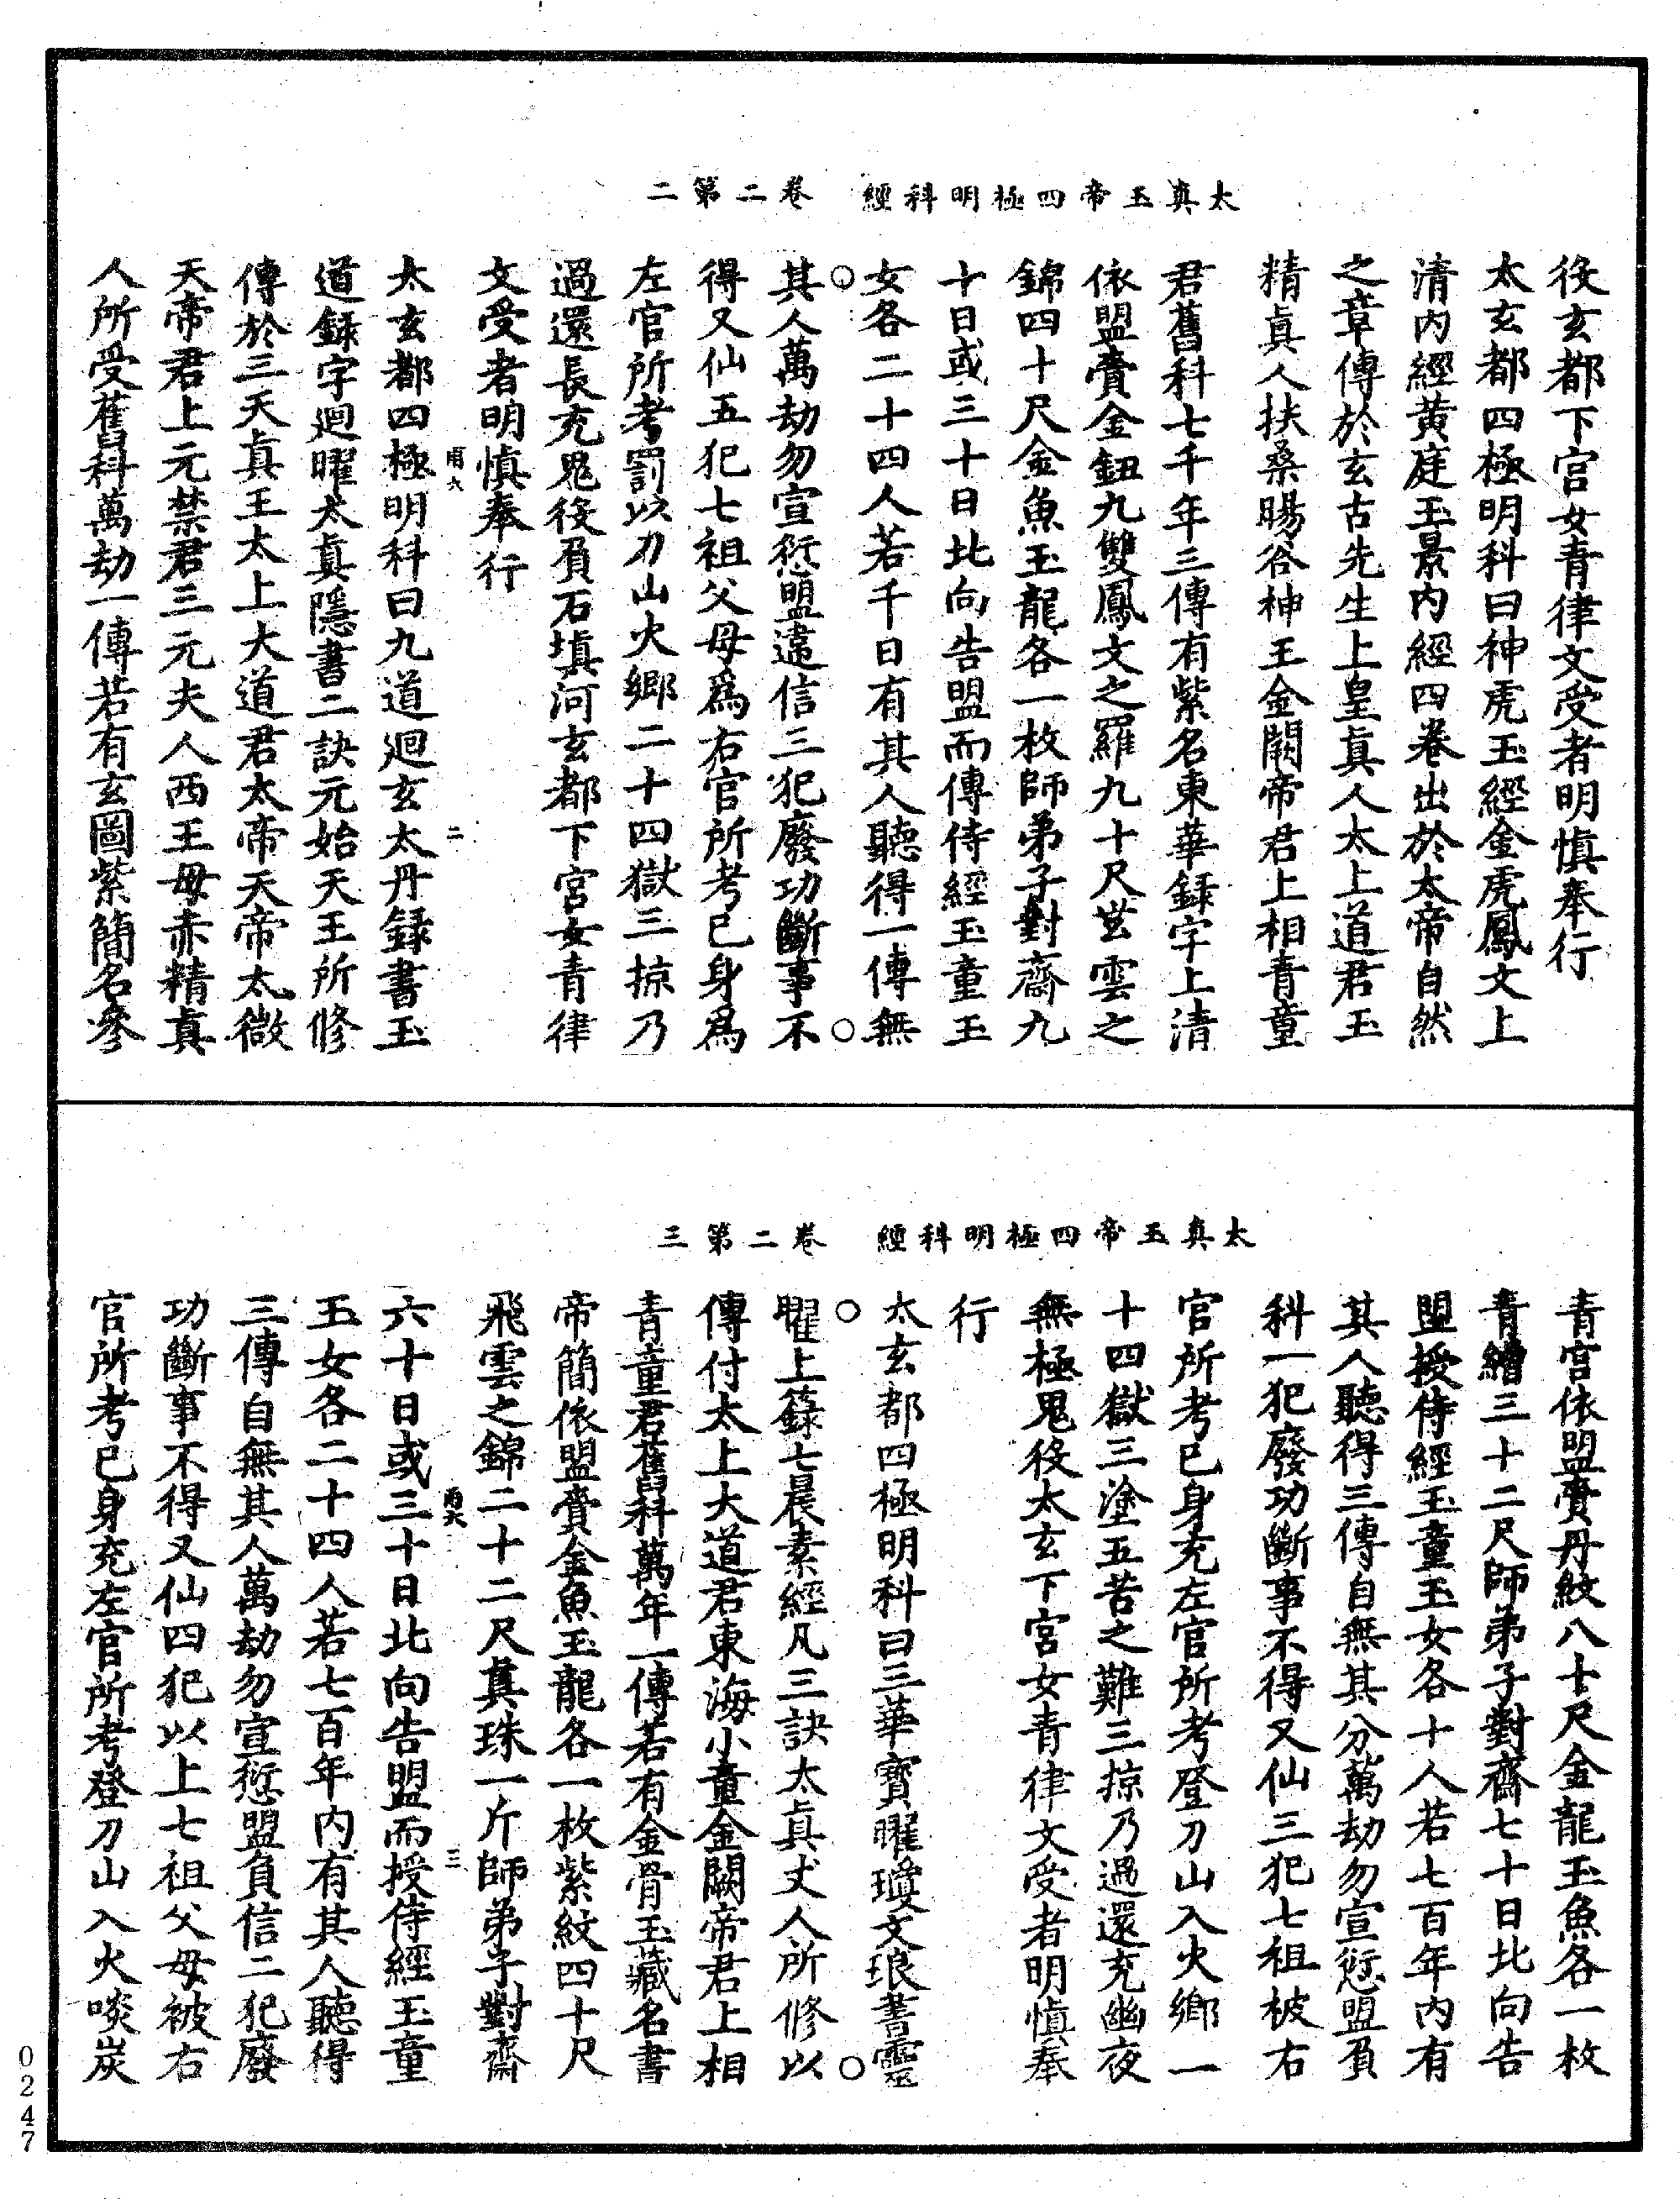 太真玉帝四極明科經　卷二第二
役玄都下宫女青律文受者明慎奉行
太玄都四極明科曰神虎玉經金虎鳳文上
清内經黄庭玉景内經四卷出於太帝自然
之章傳於玄古先生上皇真人太上道君玉
精真人扶桑暘谷神王金闕帝君上相青童
君舊科七千年三傳有紫名東華録字上清
依盟賫金鈕九雙鳳文之羅九十尺茁雲之
錦四十尺金魚玉龍各一枚師弟子對齋九
十日或三十日北向告盟而傳侍經玉童玉
女各二十四人若千日有其人聽得一傳無
其人萬劫勿宣愆盟違信三犯廢功斷事不
得又仙五犯七祖父母爲右官所考已身爲
左官所考罰以刀山火鄉二十四獄三掠乃
過還長充鬼役負石填河玄都下宫女青律
文受者明慎奉行
太玄都四極明科曰九道迴玄太丹録書玉
道録字迴曜太真隱書二訣元始天王所修
傳於三天真王太上大道君太帝天帝太微
天帝君上元禁君三元夫人西王母赤精真
人所受舊科萬劫一傳若有玄圖紫簡名參
雨六
二
太真玉帝四極明科經　卷二第三
青宫依盟賫丹紋八十尺金龍玉魚各一枚
青繒三十二尺師弟子對齋七十日北向告
盟授侍經玉童玉女各十人若七百年内有
其人聽得三傳自無其分萬劫勿宣愆盟負
科一犯廢功斷事不得又仙三犯七祖被右
官所考已身充左官所考登刀山入火鄉一
十四獄三塗五苦之難三掠乃過還充幽夜
無極鬼役太玄下宫女青律文受者明慎奉
行
太玄都四極明科曰三華寶曜瓊文琅書靈
曜上籙七晨素經凡三訣太真丈人所修以
傳付太上大道君東海小童金闕帝君上相
青童君舊科萬年一傳若有金骨玉藏名書
帝簡依盟賫金魚玉龍各一枚紫紋四十尺
飛雲之錦二十二尺真珠一斤師弟子對齋
六十日或三十日北向告盟而授侍經玉童
玉女各二十四人若七百年内有其人聽得
三傳自無其人萬劫勿宣愆盟負信二犯廢
功斷事不得又仙四犯以上七祖父母被右
官所考已身充左官所考登刀山入火啖炭
雨六
三
0247